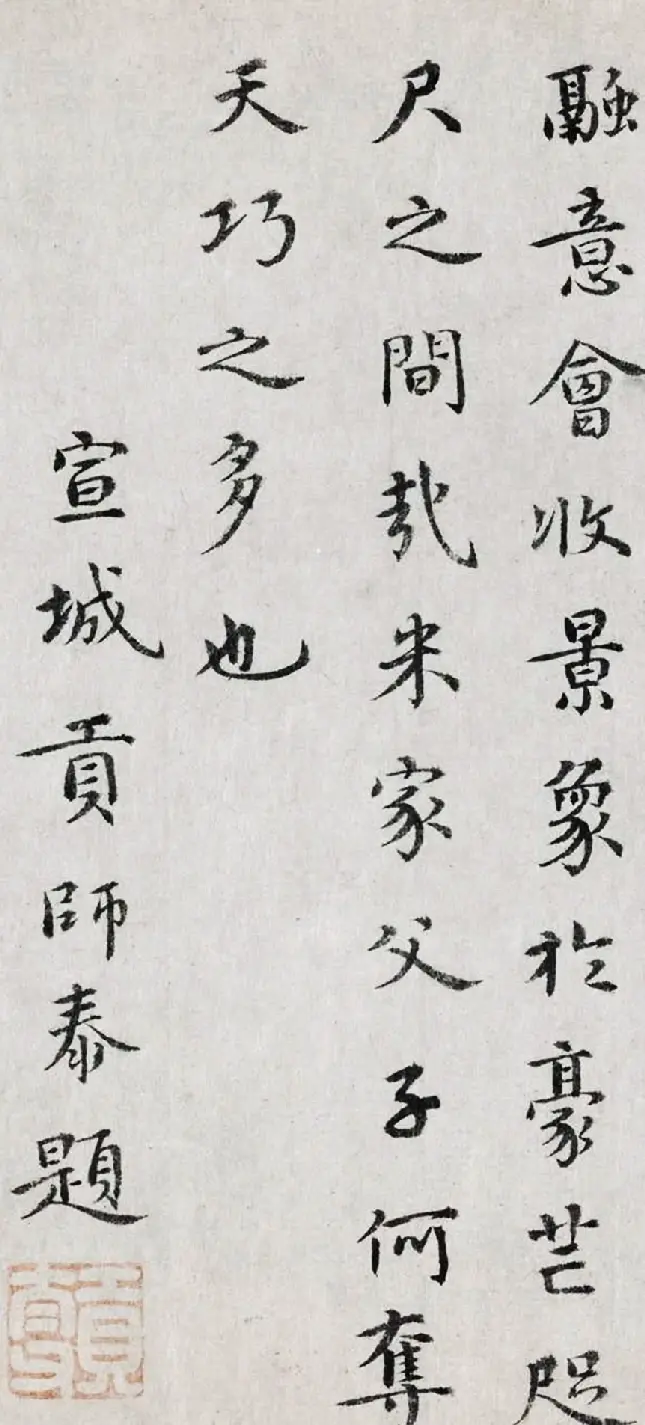 融意會收景象於豪芒咫
尺之間哉米家父子何奪
天巧之多也
宣城貢師泰題